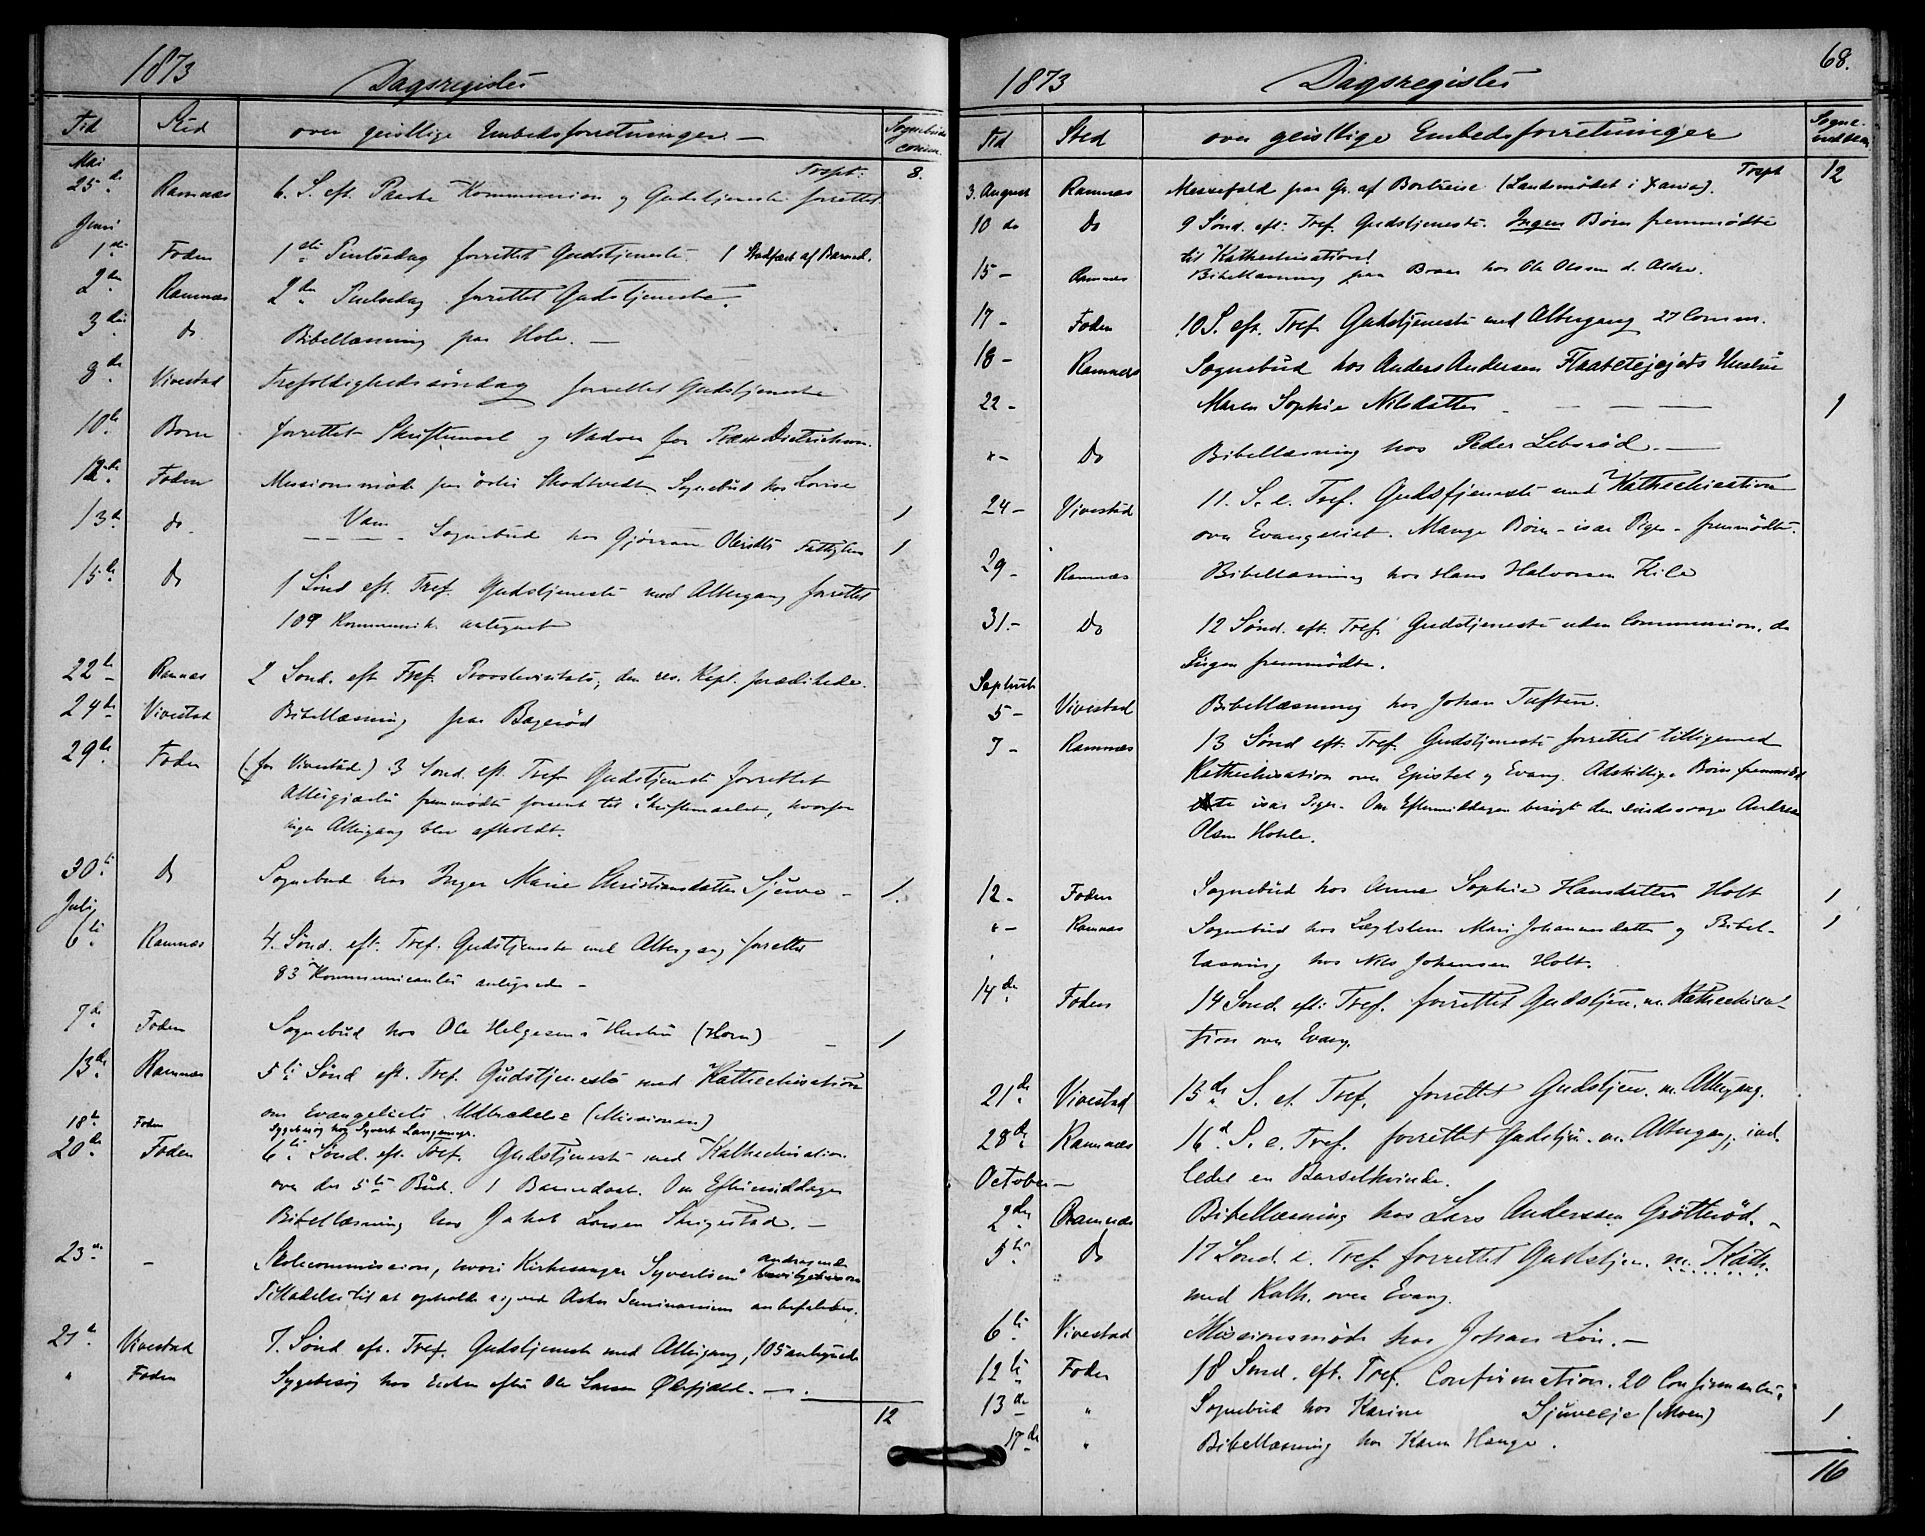 1873
Dagsregister
Tid Sted over geistlige Embedsforretninger. — Sognebuds comm.
Transpt. 8.
Mai
25de Ramnæs 6. S. eft. Paaske Kommunion og Gudstjeneste forrettet
Juni
1ste Foden 1ste Pintsedag forrettet Gudstjeneste. 1 Stadfæst. af Barned.
2den Ramnæs 2den Pintsedag forrettet Gudstjeneste.
3die do Bibellæsning paa Hole. —
8de Vivestad Trefoldighedssøndag forrettet Gudstjeneste
10de forrettet Skriftemaal og Nadver for
12te Foden Missionsmøde paa østre Skodtvedt. Sognebud hos Lovise
Vam — 1
13de do. Sognebud hos 1
15de Do 1 Sønd eft. Tref. Gudstjeneste med Altergang forrettet
109 Kommunik. antegnet
22de Ramnæs 2 Sønd. eft. Tref. Provstevisitats; den res. Kapl. prædikede.
24de Vivestad Bibellæsning paa Bagerød
29de Foden (for Vivestad) 3 Sønd. eft. Tref Gudstjeneste forrettet
Altergjæster fremmødte forsent til Skriftemaalet, hvorfor
ingen Altergang blev afholdt.
30te Do Sognebud hos Inger Marie Christiansdatter Sjuve — 1.
Juli
6te Ramnæs 4. Sønd. eft. Tref. Gudstjeneste med Altergang forrettet
83 Kommunicanter antegnede —
7de Foden Sognebud hos Ole Helgesens Hustru (Horn) — 1
13de Ramnæs 5te Sønd eft. Tref. Gudstjeneste med Kathechisation
om Evangeliets Udbredelse (Missionen)
18de Foden Sygebesøg hos Syvert Langemyr.
20de Foden 6te Sønd. eft. Tref. Gudstjeneste med Kathechisation
over det 5te Bud. 1 Barnedaab. Om Eftermiddagen
Bibellæsning hos Jakob Larsen —
23de — Skolecommission, hvori Kirkesanger Syvertsens andragende
Tilladelse til at opholde sig ved Asker Seminarium anbefaledes.
27de Vivestad 7. Sønd eft. Tref. Gudstjeneste med Altergang, 105 antegnede
" Foden Sygebesøg hos Enken efter Ole Larsen —
12
68.
1873
Dagsregister
Tid Sted over geistlige Embedsforretninger
Transpt 12
3. August Ramnæs Messefald paa Gr. af Bortreise (Landsmødet i Xania).
10 do Do 9 Sønd. eft: Tref. Gudstjeneste. Ingen Børn fremmødte
til Kathechisation!
15 — Ramnæs Bibellæsning paa hos Ole Olsen d. Ældre.
17 — Foden 10 S. eft. Tref Gudstjeneste med Altergang 27 Comm.
18 — Ramnæs Sognebud hos Anders Andersen Hustru
22 — Maren Sophie Nilsdatter — — — 1
" — Do Bibellæsning hos Peder Lebsrød. —
24 — Vivestad 11. S. e. Tref. Gudstjeneste med Kathechisation
over Evangeliet. Mange Børn — især Piger — fremmødte.
29 — Ramnæs Bibellæsning hos Hans Halvorsen Kile
31. — Do 12 Sønd. eft. Tref. Gudstjeneste uden Communion, da
Ingen fremmødte.
Septemb
5 — Vivestad Bibellæsning hos Johan Tuften.
7 — Ramnæs 13 Sønd eft. Tref. Gudstjeneste forrettet tilligemed
Kathechisation over Epistel og Evang. Adskillige Børn fremmød
te især Piger. Om Eftermiddagen besøgt den sindssvage Andreas
Olsen
12 — Foden Sognebud hos Anne Sophie Hansdatter Holt 1
" — Ramnæs Sognebud hos Lægdslem Mari Johannesdatter og Bibel- 1
læsning hos Nils Johansen Holt.
14de Foden 14 Sønd. eft: Tref. forrettet Gudstjen. m. Kathechisa-
tion over Evang.
21de Vivestad 15de S. e. Tref. forrettet Gudstjen. m. Altergang.
28de Ramnæs 16d. S. e. Tref. forrettet Gudstjen. m. Altergang, ind-
ledet en Barselkvinde.
October —
2den Ramnæs Bibellæsning hos Lars Anderssen Grøtterød. —
5te Do 17 Sønd. e. Tref. forrettet Gudstjen. m. Kath.
med Kath. over Evang.
6te Vivestad Missionsmøde hos Johan —
12te Foden 18 Sønd. eft. Tref. Confirmation. 20 Confirmanter.
13de " Sognebud hos Karine (Moen) 1
17de " Bibellæsning hos Karen Hauge.
16